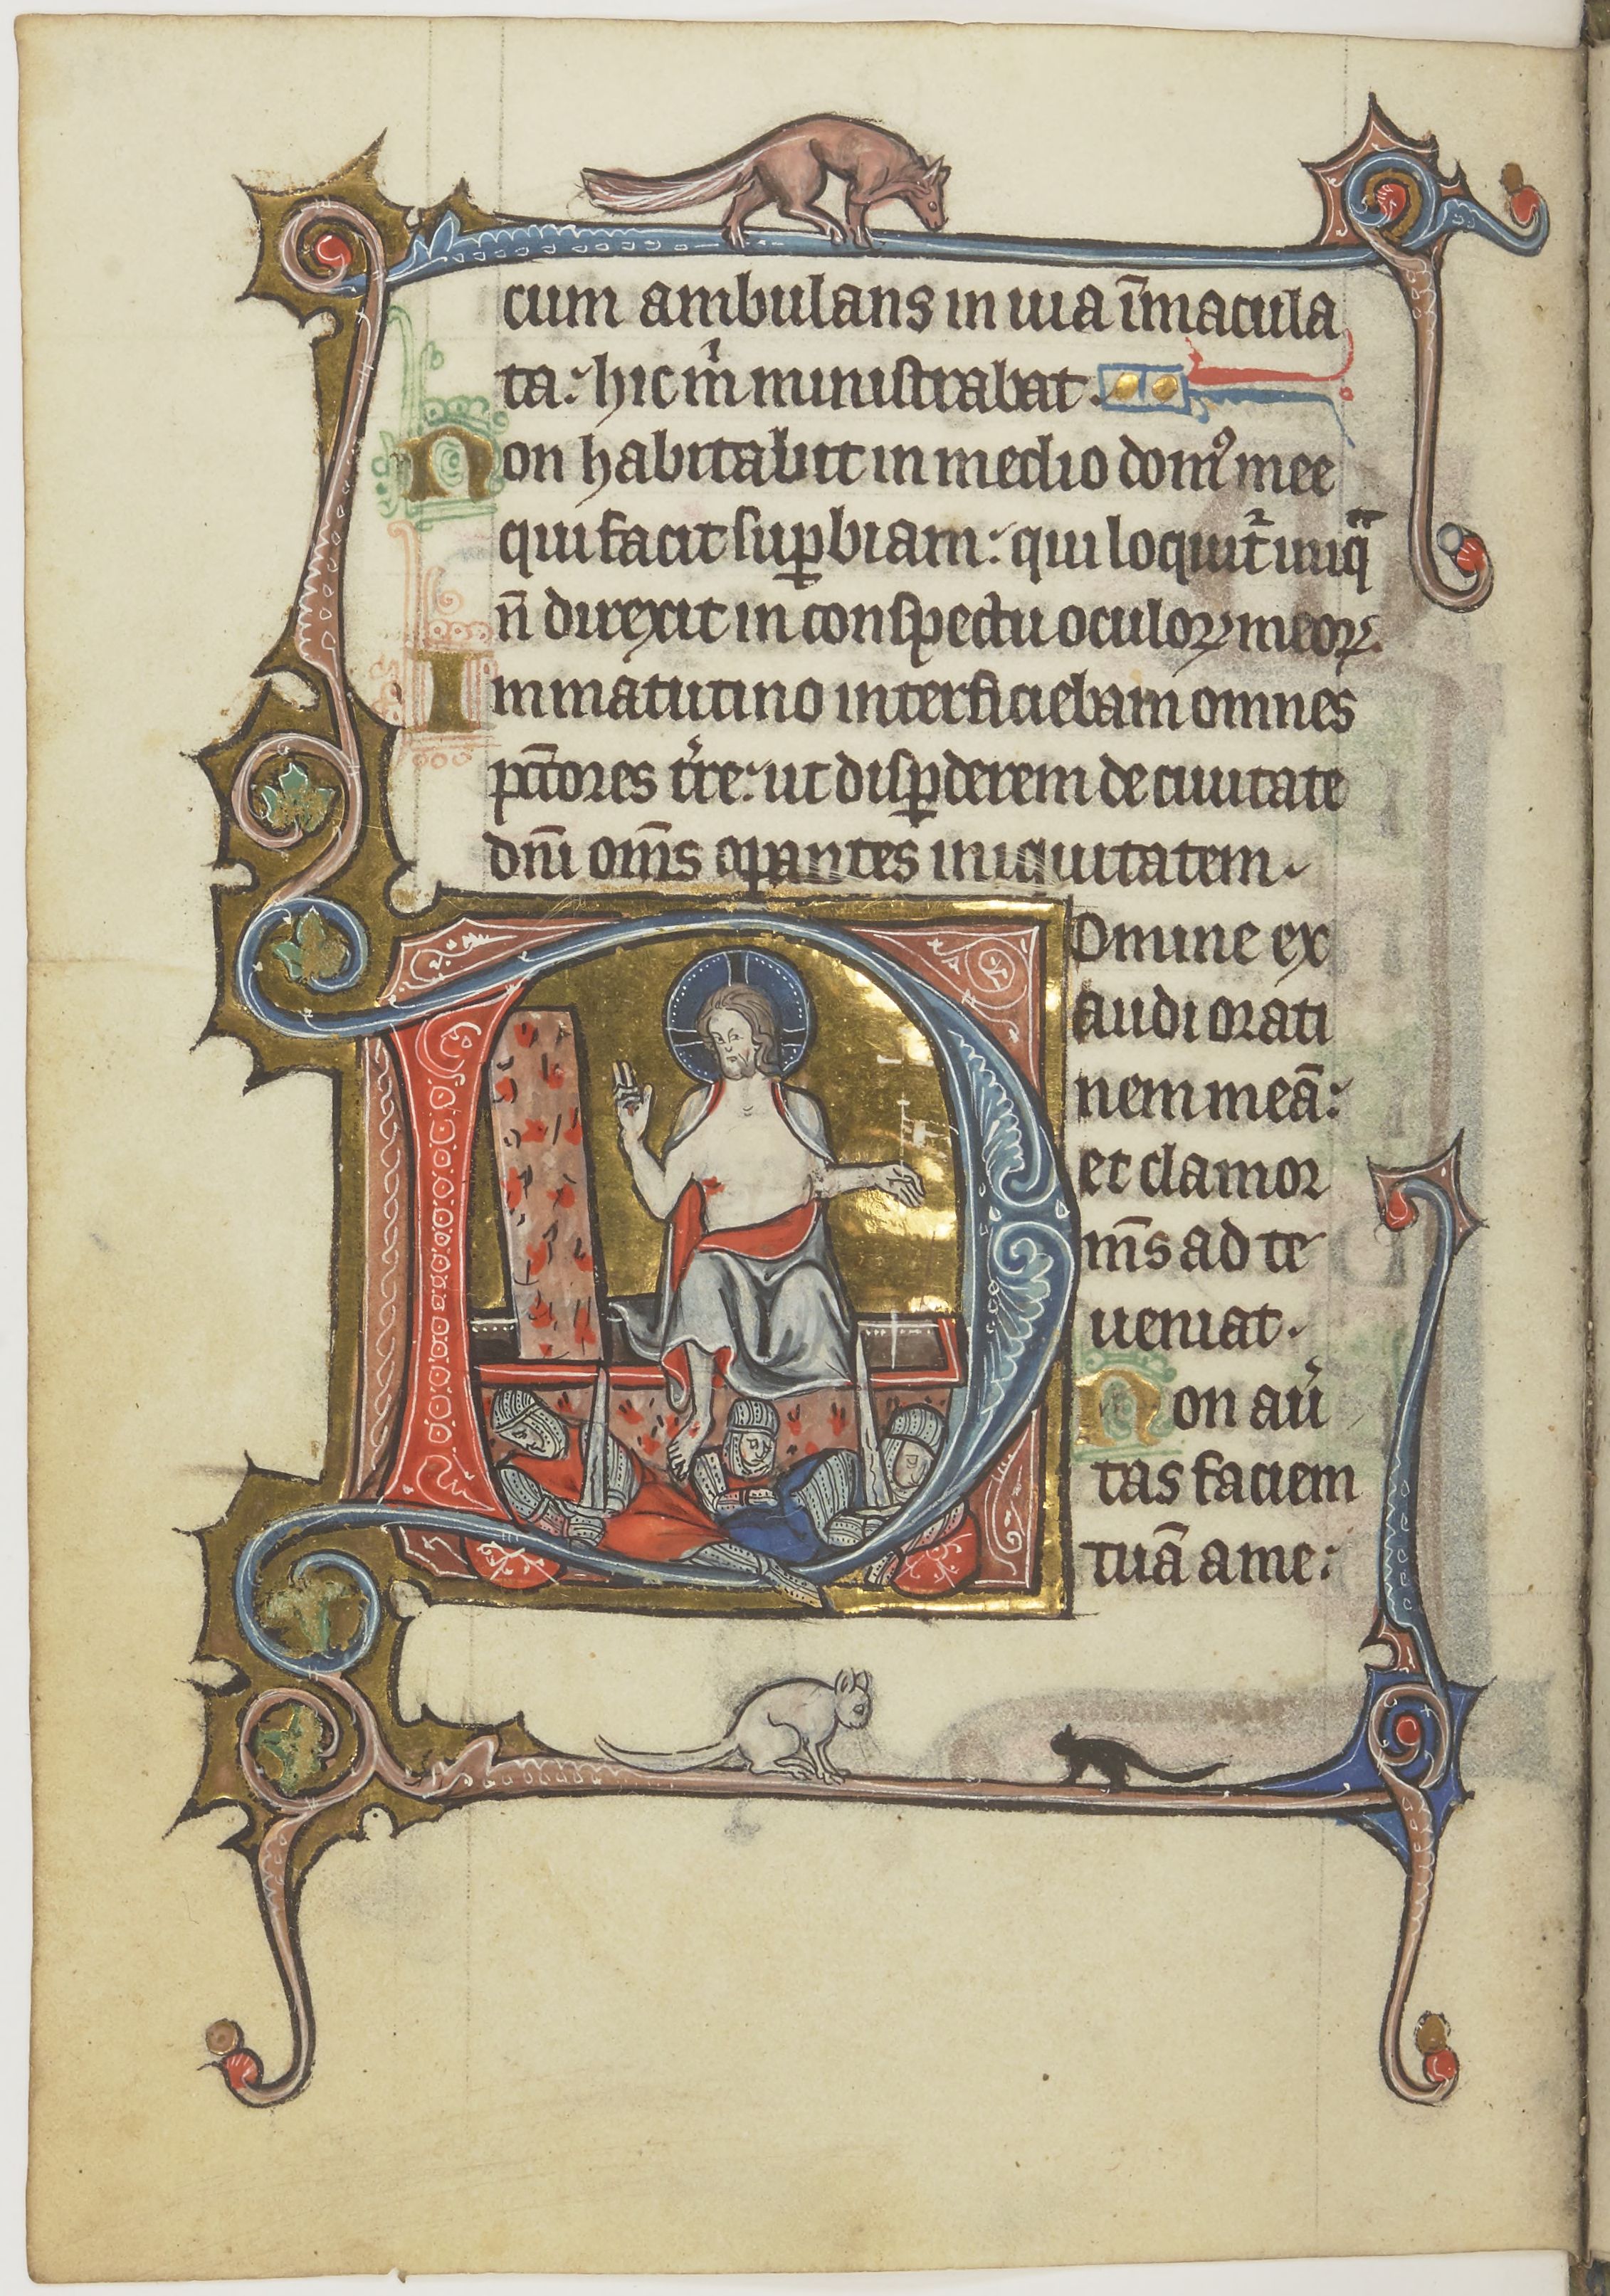 cum ambulans in uia ı̄macula
ta: hic m̉ ministrabat.
Non habitabit in medio domꝰ mee
qui facit suꝑbiam: qui loquit᷑ iniq̄
n̄ direxit in conspectu oculoꝝ meoꝝ.
In matutino interficiebam omnes
pctōres t̉re: ut disꝑderem de ciuitate
dnı̄ om̄s opantes iniquitatem.
Domine ex
audi orati
nem meā:
et clamor
m̄s ad te
ueniat.
Non aủ
tas faciem
tuā a me: